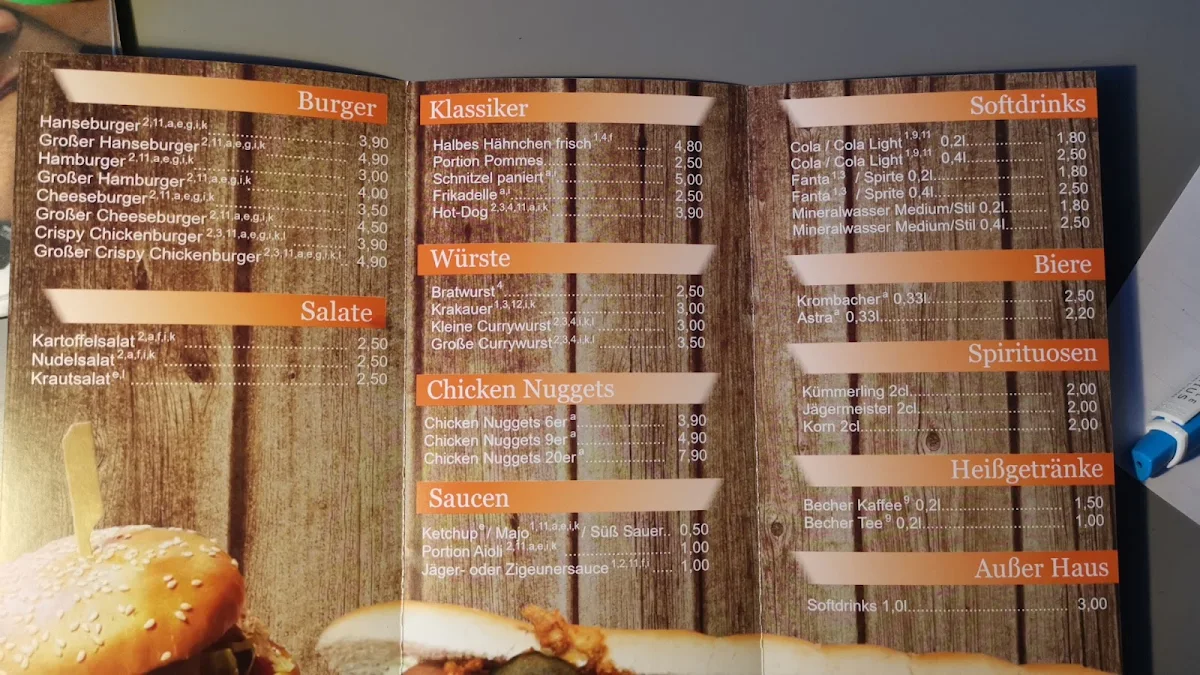 Burger
Hanseburger 2,11,a,e,g,i,k 3,90
Großer Hanseburger 2,11,a,e,g,i,k 4,90
Hamburger 2,11,a,e,g,i,k 3,00
Großer Hamburger 2,11,a,e,g,i,k 4,00
Cheeseburger 2,11,a,e,g,i,k 3,50
Großer Cheeseburger 2,11,a,e,g,i,k 4,50
Crispy Chickenburger 2,3,11,a,e,g,i,k,l 3,90
Großer Crispy Chickenburger 2,3,11,a,e,g,i,k,l 4,90
Salate
Kartoffelsalat 2,a,f,i,k 2,50
Nudelsalat 2,a,f,i,k 2,50
Krautsalat e,l 2,50
Klassiker
Halbes Hähnchen frisch 1,4,f 4,80
Portion Pommes 2,50
Schnitzel paniert a,i 5,00
Frikadelle a,i 2,50
Hot-Dog 2,3,4,11,a,i,k 3,90
Würste
Bratwurst 4 2,50
Krakauer 1,3,12,i,k 3,00
Kleine Currywurst 2,3,4,i,k,l 3,00
Große Currywurst 2,3,4,i,k,l 3,50
Chicken Nuggets
Chicken Nuggets 6er a 3,90
Chicken Nuggets 9er a 4,90
Chicken Nuggets 20er a 7,90
Saucen
Ketchup e / Majo 1,11,a,e,i,k / Süß Sauer.. 0,50
Portion Aioli 2,11,a,e,i,k 1,00
Jäger- oder Zigeunersauce 1,2,11,f,i 1,00
Softdrinks
Cola / Cola Light 1,9,11 0,2l 1,80
Cola / Cola Light 1,9,11 0,4l 2,50
Fanta 1,3 / Spirte 0,2l 1,80
Fanta 1,3 / Sprite 0,4l 2,50
Mineralwasser Medium/Stil 0,2l 1,80
Mineralwasser Medium/Stil 0,4l 2,50
Biere
Krombacher a 0,33l 2,50
Astra a 0,33l 2,20
Spirituosen
Kümmerling 2cl 2,00
Jägermeister 2cl 2,00
Korn 2cl 2,00
Heißgetränke
Becher Kaffee 9 0,2l 1,50
Becher Tee 9 0,2l 1,00
Außer Haus
Softdrinks 1,0l 3,00